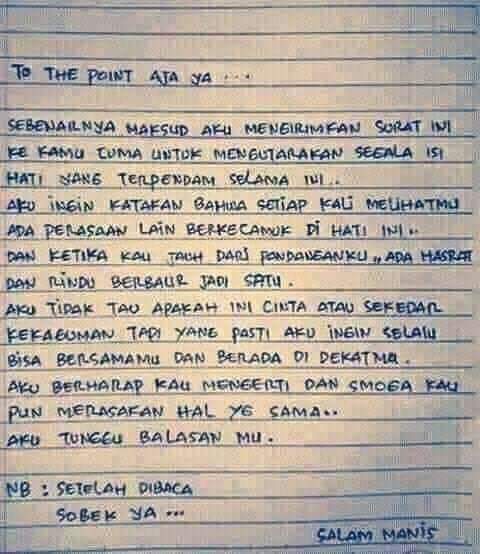 TO THE POINT AJA YA ...
SEBENARNYA MAKSUD AKU MENGIRIMKAN SURAT INI
KE KAMU CUMA UNTUK MENGUTARAKAN SEGALA ISI
HATI YANG TERPENDAM SELAMA INI..
AKU INGIN KATAKAN BAHWA SETIAP KALI MELIHATMU
ADA PERASAAN LAIN BERKECAMUK DI HATI INI..
DAN KETIKA KAU JAUH DARI PANDANGANKU,, ADA HASRAT
DAN RINDU BERBAUR JADI SATU.
AKU TIDAK TAU APAKAH INI CINTA ATAU SEKEDAR
KEKAGUMAN TAPI YANG PASTI AKU INGIN SELALU
BISA BERSAMAMU DAN BERADA DI DEKATMU.
AKU BERHARAP KAU MENGERTI DAN SMOGA KAU
PUN MERASAKAN HAL YG SAMA..
AKU TUNGGU BALASAN MU.
NB : SETELAH DIBACA
SOBEK YA ...
SALAM MANIS